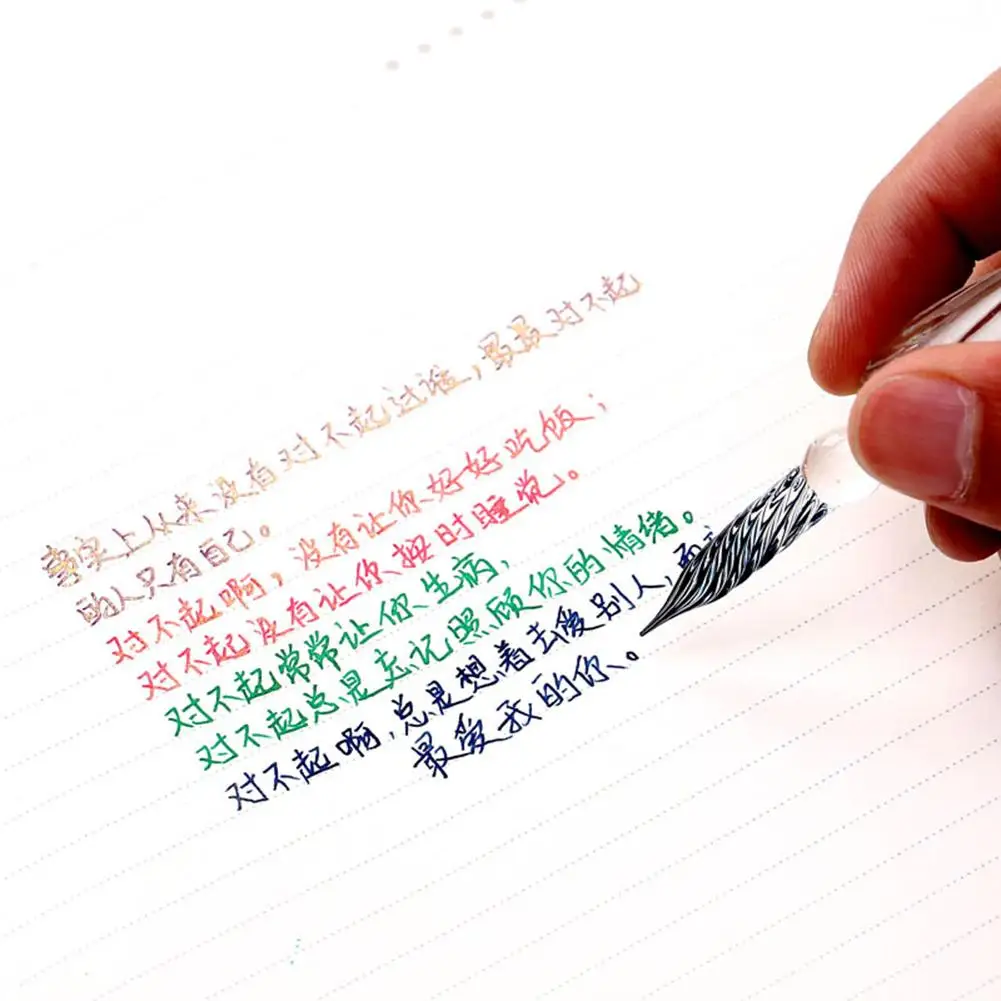 事实上从来没有对不起过谁，最对不起
的人只有自己。
对不起啊，没有让你好好吃饭；
对不起没有让你按时睡觉。
对不起常常让你生病，
对不起总是忘记照顾你的情绪。
对不起啊，总是想着去爱别人，而
最爱我的你。